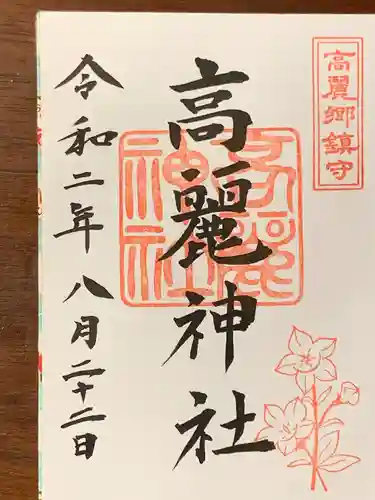 高麗郷鎮守
高麗神社
高麗神社
令和二年八月二十二日